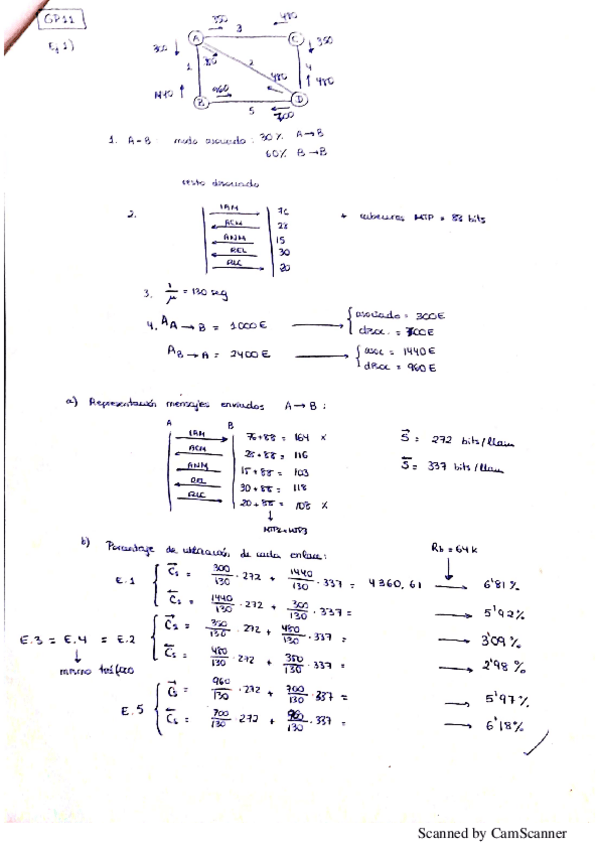 GP11
Ej 1)
350
480
3
A
C
300
350
80
2
1
4
480
480
1440
960
B
D
5
700
1. A-B : modo asociado : 30% A→B
60% B→B
resto disociado
2.
IAM 76
ACM 28
ANM 15
REL 30
RLC 20
+ cabeceras MTP = 88 bits
3. 1/μ = 130 seg
4. A A→B = 1000 E → { asociado = 300 E
disoc. = 700 E
A B→A = 2400 E → { asoc = 1440 E
disoc = 960 E
a) Representación mensajes enviados A→B :
A B
IAM 76+88 = 164 x
ACM 28+88 = 116
ANM 15+88 = 103
REL 30+88 = 118
RLC 20+88 = 108 x
MTP2+MTP3
S = 272 bits/llam
S = 337 bits/llam
b) Porcentaje de utilización de cada enlace :
Rb = 64k
E.1 { C1 = 300/130 · 272 + 1440/130 · 337 = 4360,61 → 6'81%
C1 = 1440/130 · 272 + 300/130 · 337 = → 5'92%
E.3 = E.4 = E.2 { C2 = 350/130 · 272 + 480/130 · 337 = → 3'09%
C2 = 480/130 · 272 + 350/130 · 337 = → 2'98%
mismo tráfico
E.5 { C5 = 960/130 · 272 + 700/130 · 337 = → 5'97%
C5 = 700/130 · 272 + 960/130 · 337 = → 6'18%
Scanned by CamScanner